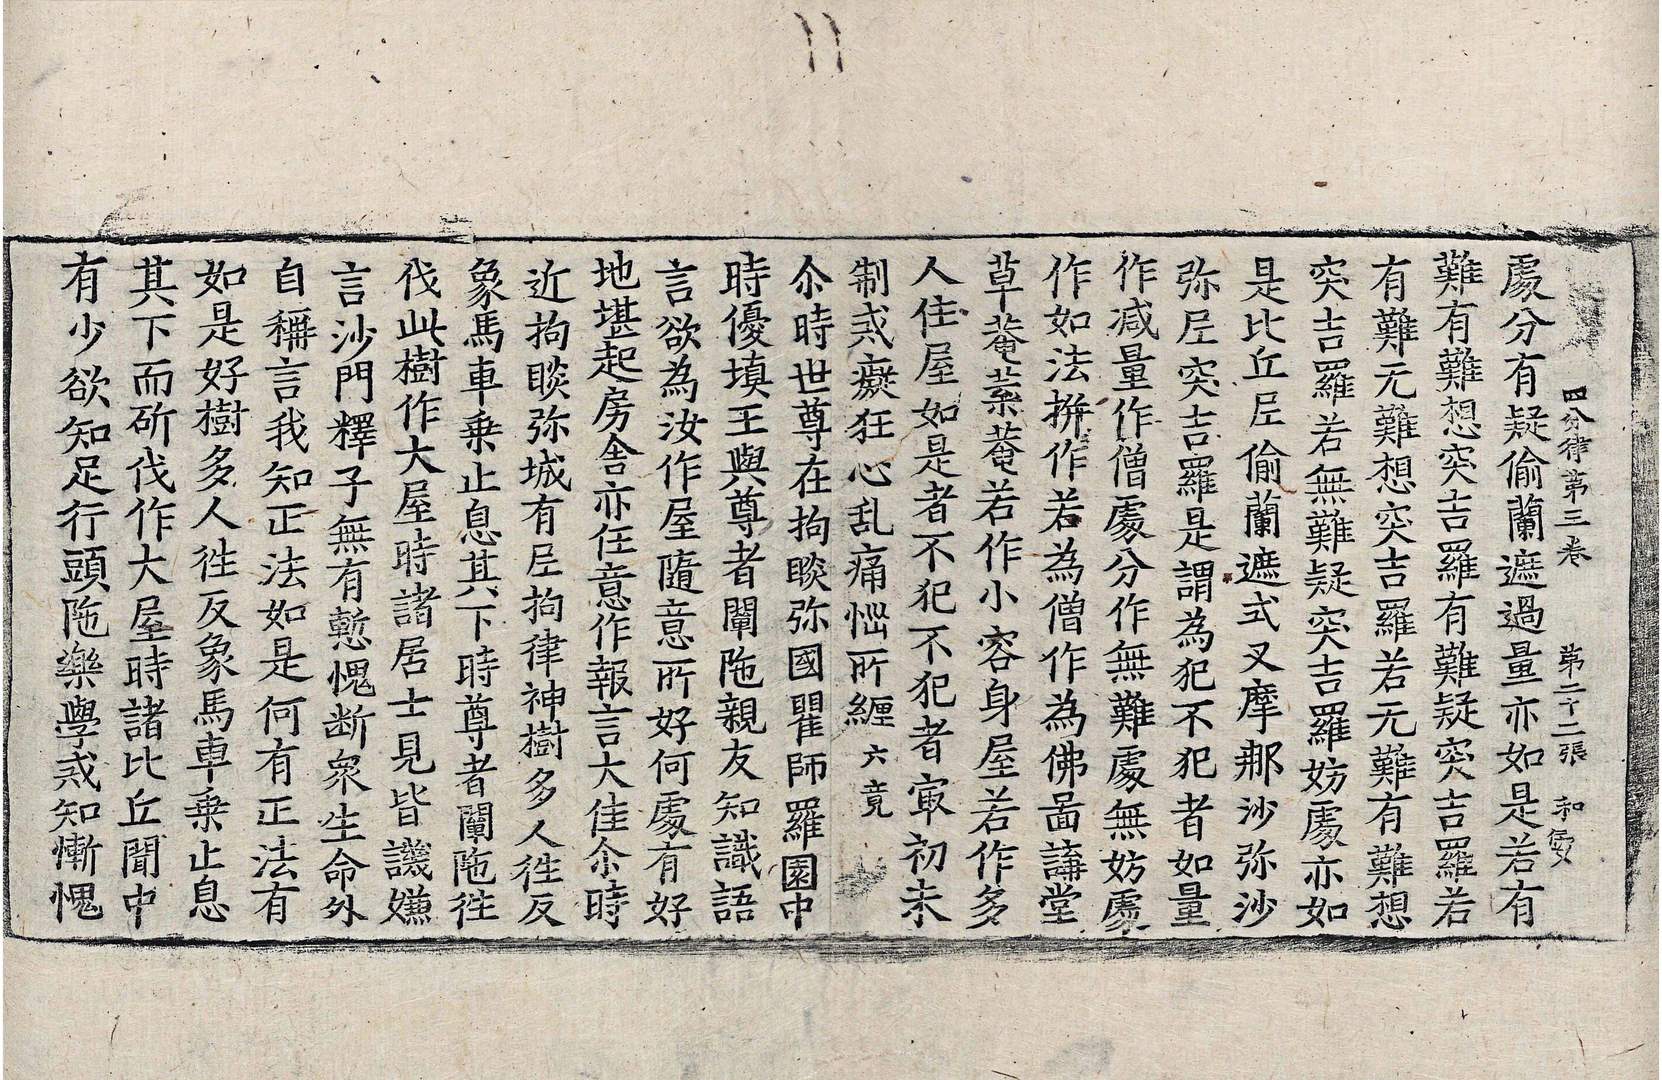 四分律第三卷　第二十二張　和
處分有疑偷蘭遮過量亦如是若有
難有難想突吉羅有難疑突吉羅若
有難无難想突吉羅若无難有難想
突吉羅若無難疑突吉羅妨處亦如
是比丘尼偷蘭遮式叉摩那沙弥沙
弥尼突吉羅是謂為犯不犯者如量
作减量作僧處分作無難處無妨處
作如法拼作若為僧作為佛啚講堂
草菴葉菴若作小容身屋若作多
人住屋如是者不犯不犯者㝡初未
制戒癡狂心乱痛惱所纏　六竟
尒時世尊在拘睒弥國瞿師羅園中
時優填王與尊者闡陁親友知識語
言欲為汝作屋隨意所好何處有好
地堪起房舍亦任意作報言大佳尒時
近拘睒弥城有尼拘律神樹多人徃反
象馬車乗止息其下時尊者闡陁徃
伐此樹作大屋時諸居士見皆譏嫌
言沙門釋子無有慙愧断衆生命外
自稱言我知正法如是何有正法有
如是好樹多人徃反象馬車乗止息
其下而斫伐作大屋時諸比丘聞中
有少欲知足行頭陁樂學戒知慚愧